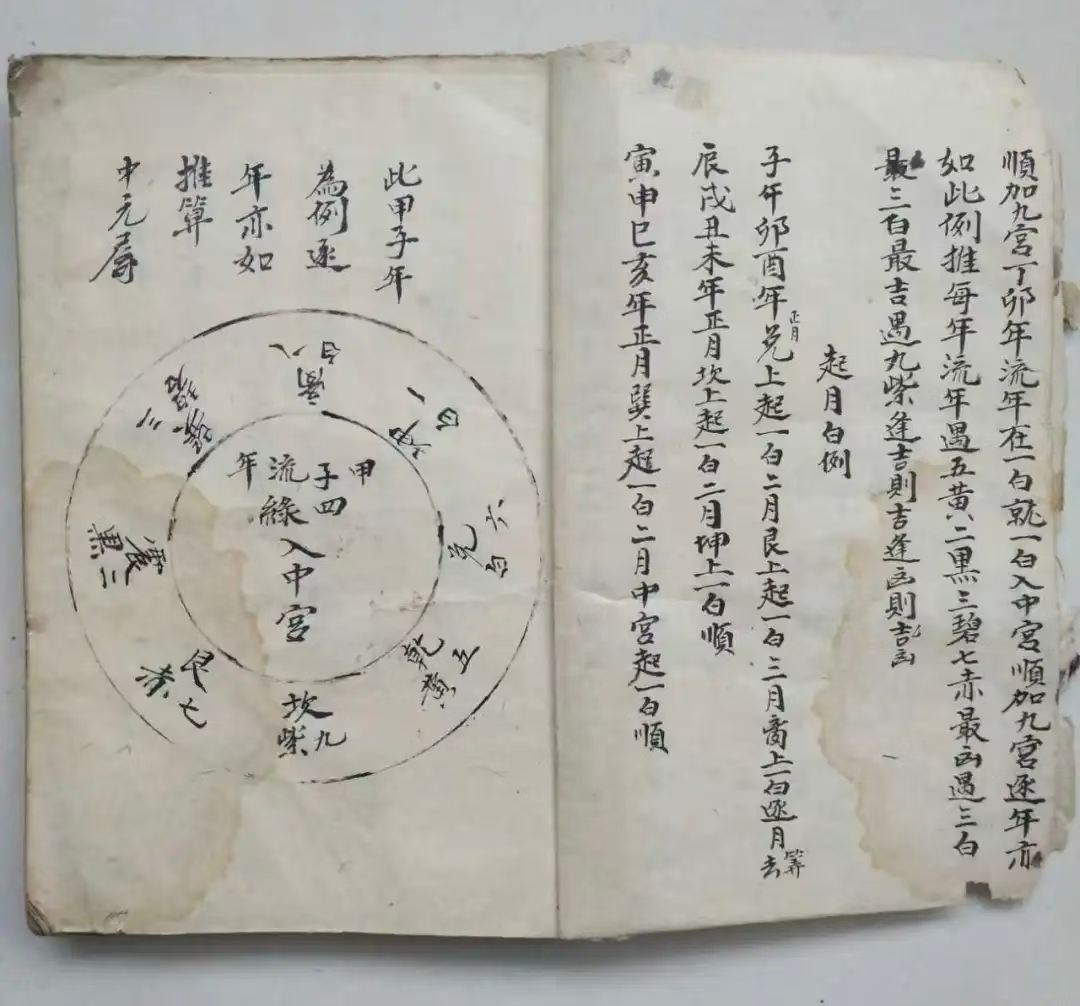 順加九宮丁卯年流年在一白就一白入中宮順加九宮逐年亦
如此例推每年流年遇五黃二黑三碧七赤最凶遇三白
最三白最吉遇九柴逢吉則吉逢凶則吉凶
起月白例
子午卯酉年正月兌上起一白二月艮上起一白三月离上一白逐月去算
辰戌丑未年正月坎上起一白二月坤上一白順
寅申巳亥年正月巽上起一白二月中宮起一白順
此甲子年
為例逐
年亦如
推算
中元
离八白
坤一白
兌六白
乾五黃
坎九柴
艮七赤
震二黑
三碧
甲子流年
四綠
入中宮